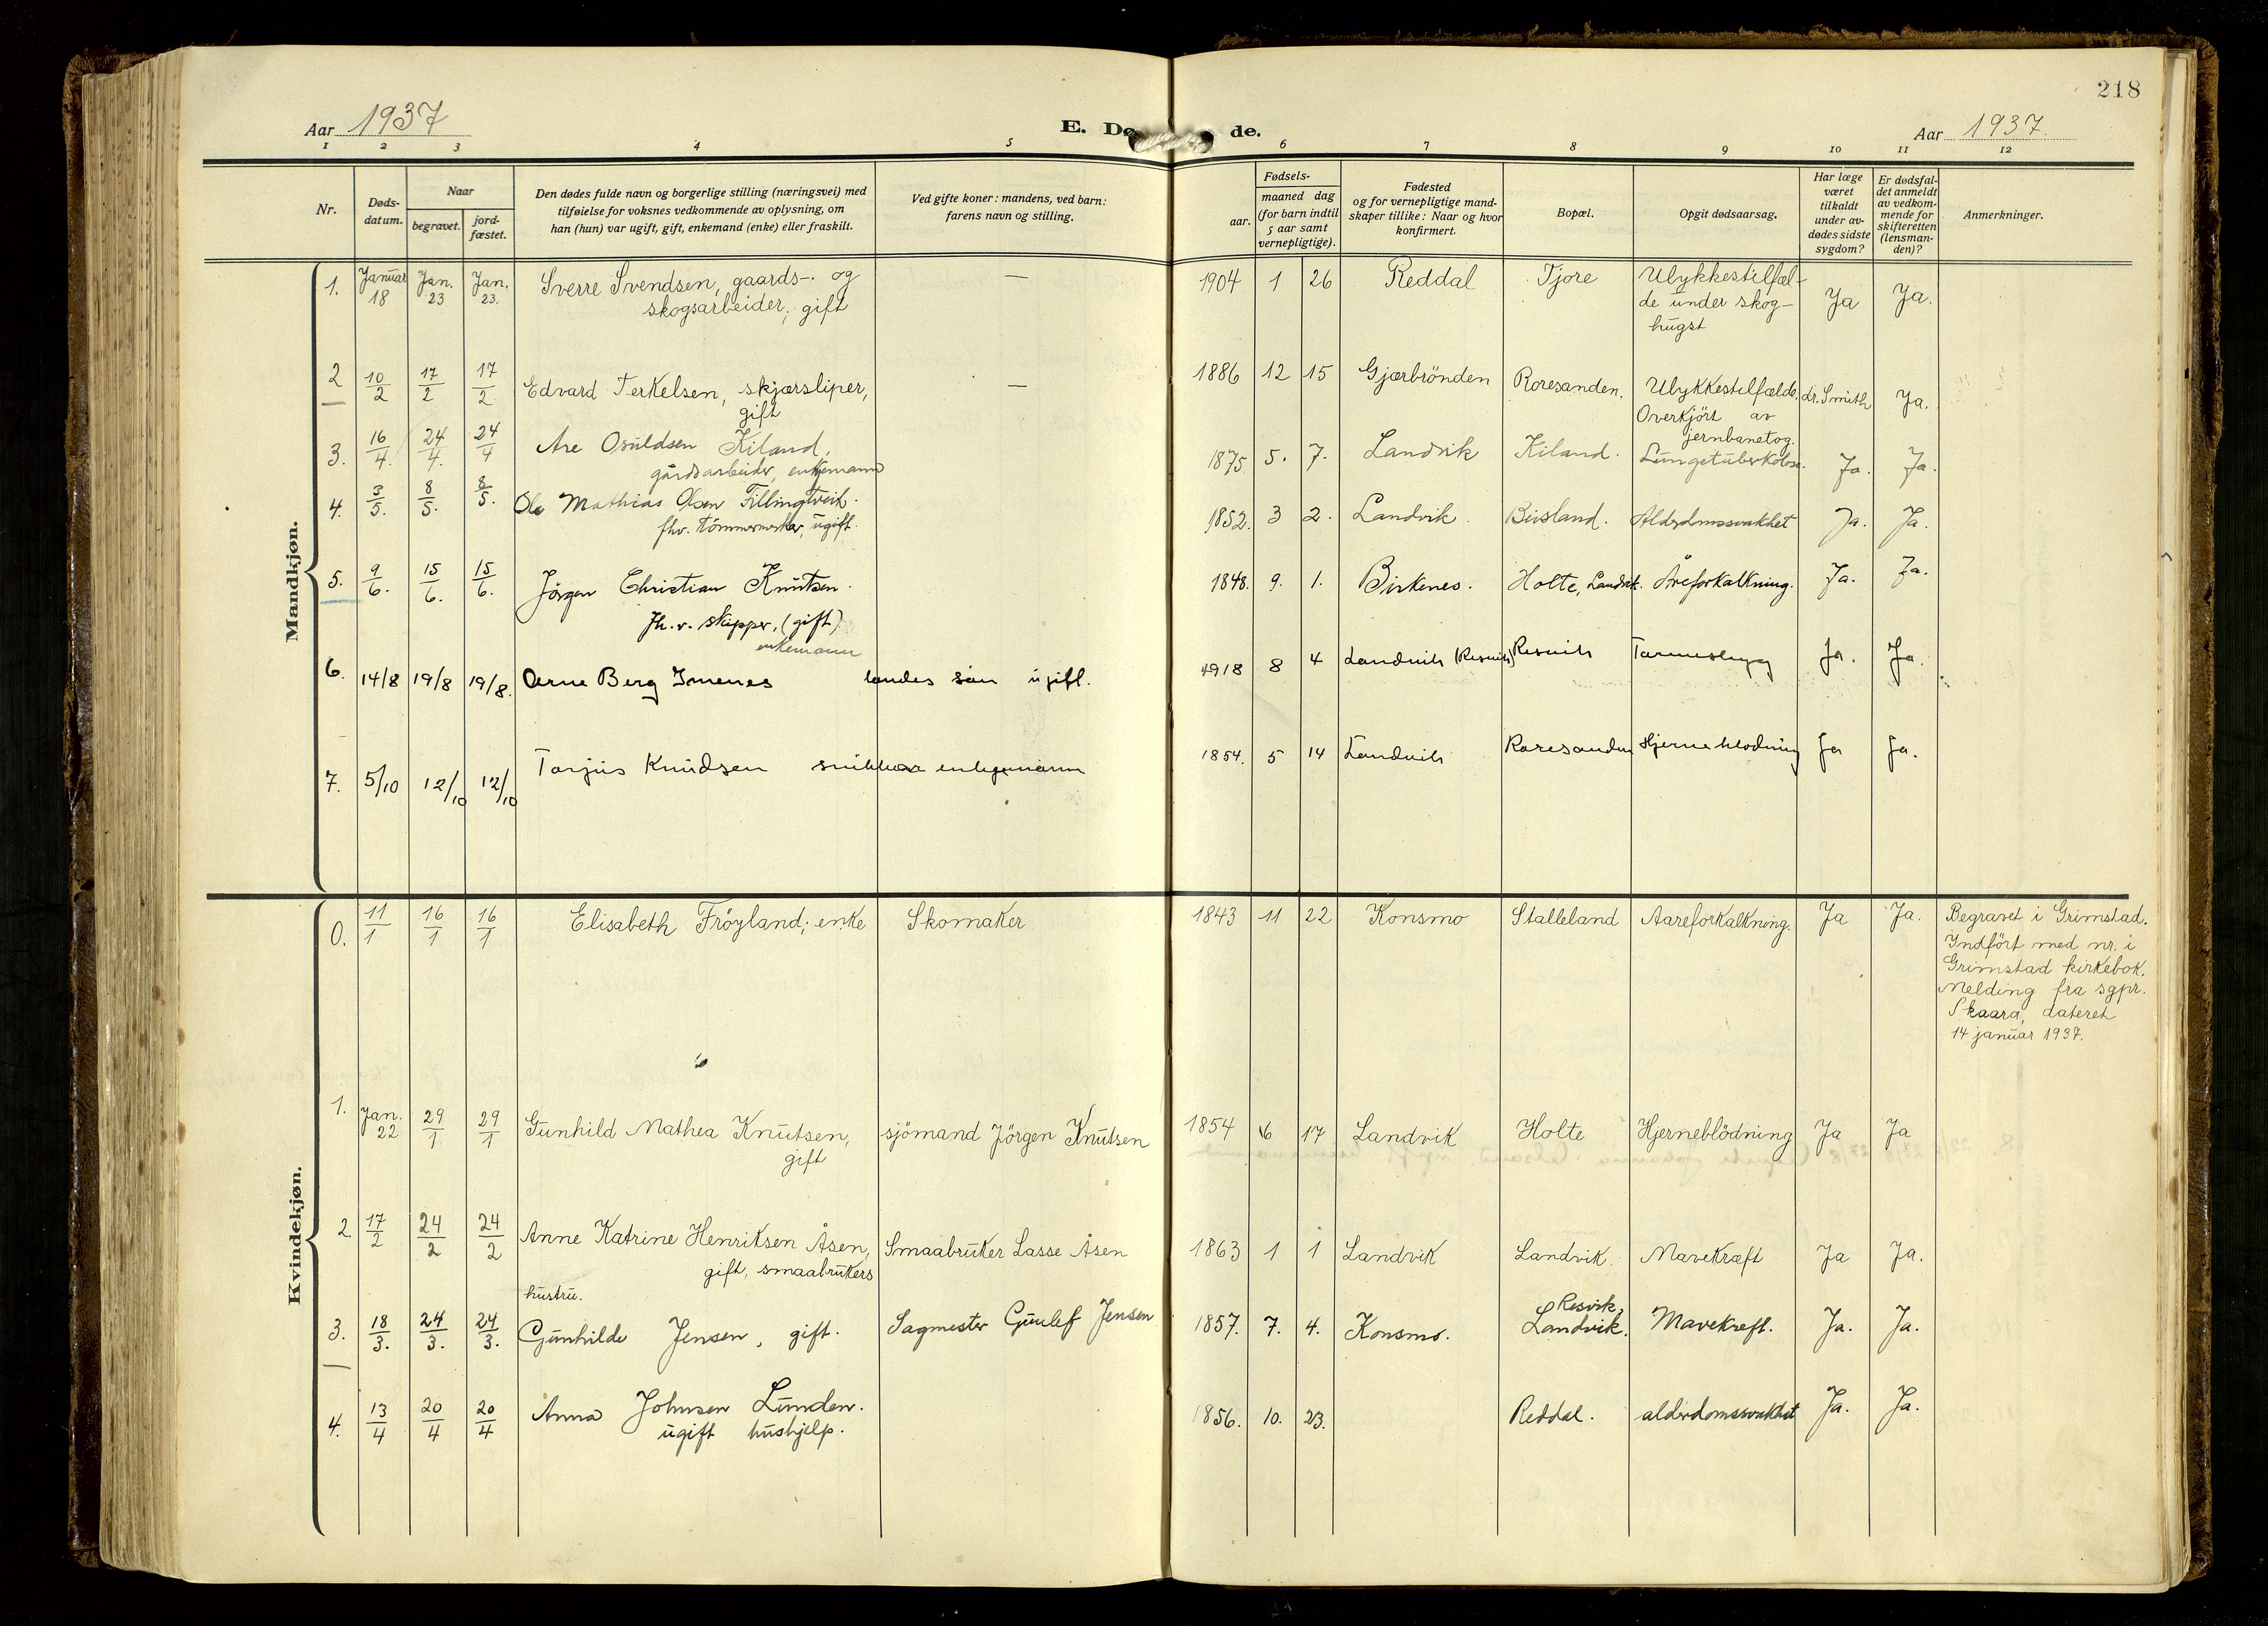 218
Aar 1937
E. Dø de.
Aar 1937.
1 2 3 4 5 6 7 8 9 10 11 12
Nr.
Døds-
datum.
Naar
begravet.
jord-
fæstet.
Den dødes fulde navn og borgerlige stilling (næringsvei) med
tilføielse for voksnes vedkommende av oplysning, om
han (hun) var ugift, gift, enkemand (enke) eller fraskilt.
Ved gifte koner: mandens, ved barn:
farens navn og stilling.
Fødsels-
aar.
maaned dag
(for barn indtil
5 aar samt
vernepligtige).
Fødested
og for vernepligtige mand-
skaper tillike: Naar og hvor
konfirmert.
Bopæl.
Opgit dødsaarsag.
Har læge
været
tilkaldt
under av-
dødes sidste
sygdom?
Er dødsfal-
det anmeldt
av vedkom-
mende for
skifteretten
(lensman-
den)?
Anmerkninger.
Mandkjøn.
1. Januar 18 Jan. 23 Jan. 23. Sverre Svendsen, gaards- og
skogsarbeider, gift
— 1904 1 26 Reddal Tjore Ulykkestilfæl-
de under skog-
hugst
Ja Ja.
2 10/2 17/2 17/2 Edvard Terkelsen, skjærsliper,
gift
— 1886 12 15 Gjærbrönden Roresanden. Ulykkestilfælde.
Overkjört av
jernbanetog.
dr. Smith Ja.
3. 16/4. 24/4. 24/4 Are Osuldsen Kiland,
gårdsarbeider, enkemann
1875. 5. 7. Landvik Kiland. Lungetuberkolose. Ja. Ja.
4. 3/5. 8/5. 8/5. Ole Mathias Olsen Fillingtveit.
fhv. tömmermerker, ugift.
1852. 3 2. Landvik. Beisland. Alderdomssvakhet Ja. Ja.
5. 9/6. 15/6. 15/6. Jörgen Christian Knutsen.
fh.v. skipper, (gift)
enkemann
1848. 9. 1. Birkenes. Holte, Landvik. Åreforkalkning. Ja. Ja.
6. 14/8 19/8 19/8. Arne Berg Imenes landes sön ugift.
1918 8 4 Landvik (Resvik) Resvik Tarmeslyng Ja. Ja.
7. 5/10 12/10 12/10 Tarjus Knudsen snikkar enkjemann
1854. 5 14 Landvik Roresanden Hjerneblødning Ja Ja.
Kvindekjøn.
0. 11/1 16/1 16/1 Elisabeth Fröyland; enke Skomaker
1843 11 22 Konsmo Stalleland Aareforkalkning. Ja Ja.
Begravet i Grimstad.
Indfört med nr. i
Grimstad kirkebok.
Melding fra sgpr.
Skaara, dateret
14 januar 1937.
1. Jan. 22 29/1 29/1 Gunhild Mathea Knutsen,
gift
sjömand Jörgen Knutsen
1854 6 17 Landvik Holte Hjerneblödning Ja Ja
2. 17/2 24/2 24/2 Anne Katrine Henriksen Åsen,
gift, smaabrukers
hustru.
Smaabruker Lasse Åsen
1863 1 1 Landvik Landvik. Mavekræft Ja Ja.
3. 18/3. 24/3. 24/3. Gunhilde Jensen, gift. Sagmester Gunlef Jensen
1857. 7. 4. Konsmo. Resvik,
Landvik. Mavekreft. Ja. Ja.
4. 13/4 20/4 20/4 Anna Johnsen Lunden.
ugift hushjelp.
1856. 10. 23. Reddal. alderdomssvakhet Ja. Ja.